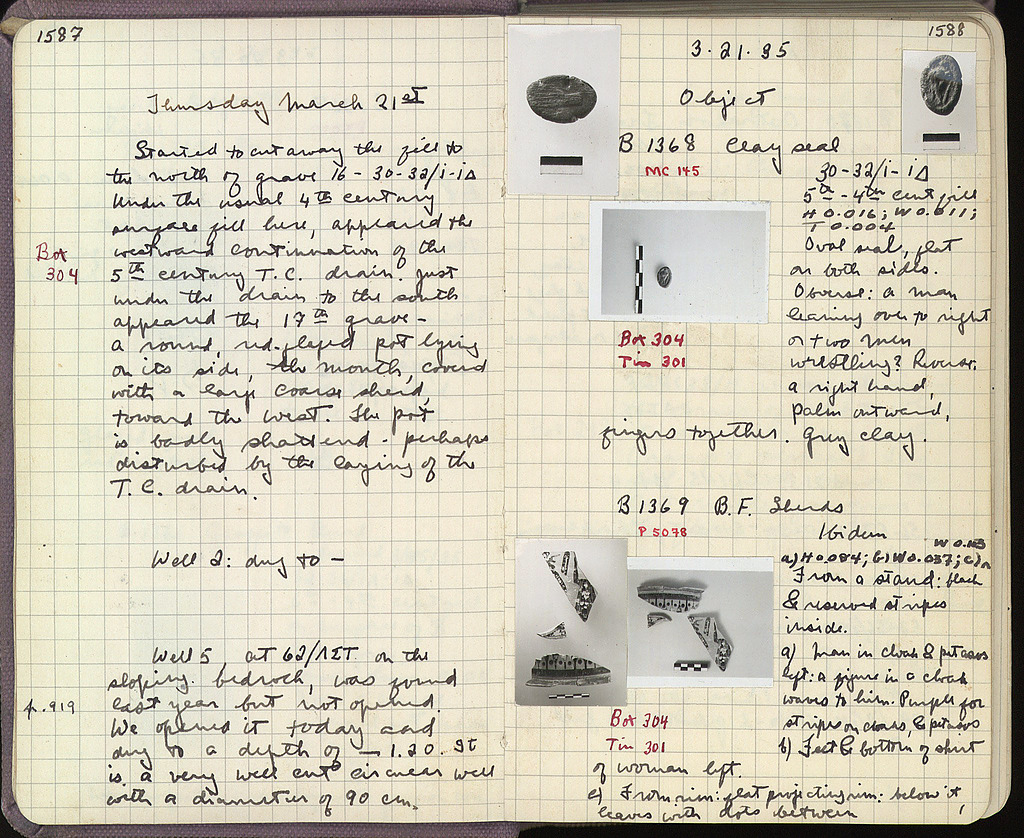 1587
Thursday March 21st
Started to cut away the fill to
the north of grave 16 - 30-32/i-iΔ
Under the usual 4th century
surface fill here, appeared the
westward continuation of the
Box
304
5th century T.C. drain. Just
under the drain to the south
appeared the 17th grave -
a round, red-glazed pot lying
on its side, the mouth, covered
with a large coarse sherd,
toward the west. The pot
is badly shattered - perhaps
disturbed by the laying of the
T.C. drain.
Well 2: dug to -
Well 5, at 62/ΛΣΤ on the
sloping bedrock, was found
p. 919
last year but not opened.
We opened it today and
dug to a depth of - 1.20. It
is a very well cut circular well
with a diameter of 90 cm.
1588
3.21.35
Object
B 1368 Clay seal
MC 145
30-32/i-iΔ
5th-4th cent fill
H 0.016; W 0.011;
T 0.004
Oval seal, flat
on both sides.
Obverse: a man
leaning over to right
or two men
wrestling? Reverse:
a right hand,
palm outward,
fingers together. Grey clay.
Box 304
Tin 301
B 1369 B.F. Sherds
P 5078
Ibidem
a) H 0.084; b) W 0.037; c)
From a stand: black
& reserved stripes
inside.
a) Man in cloak & petasos
left: a figure in a cloak
waves to him. Purple for
stripes on cloaks, & petasos
Box 304
Tin 301
b) Feet & bottom of skirt
of woman left.
c) From rim: flat projecting rim: below it
leaves with dots between